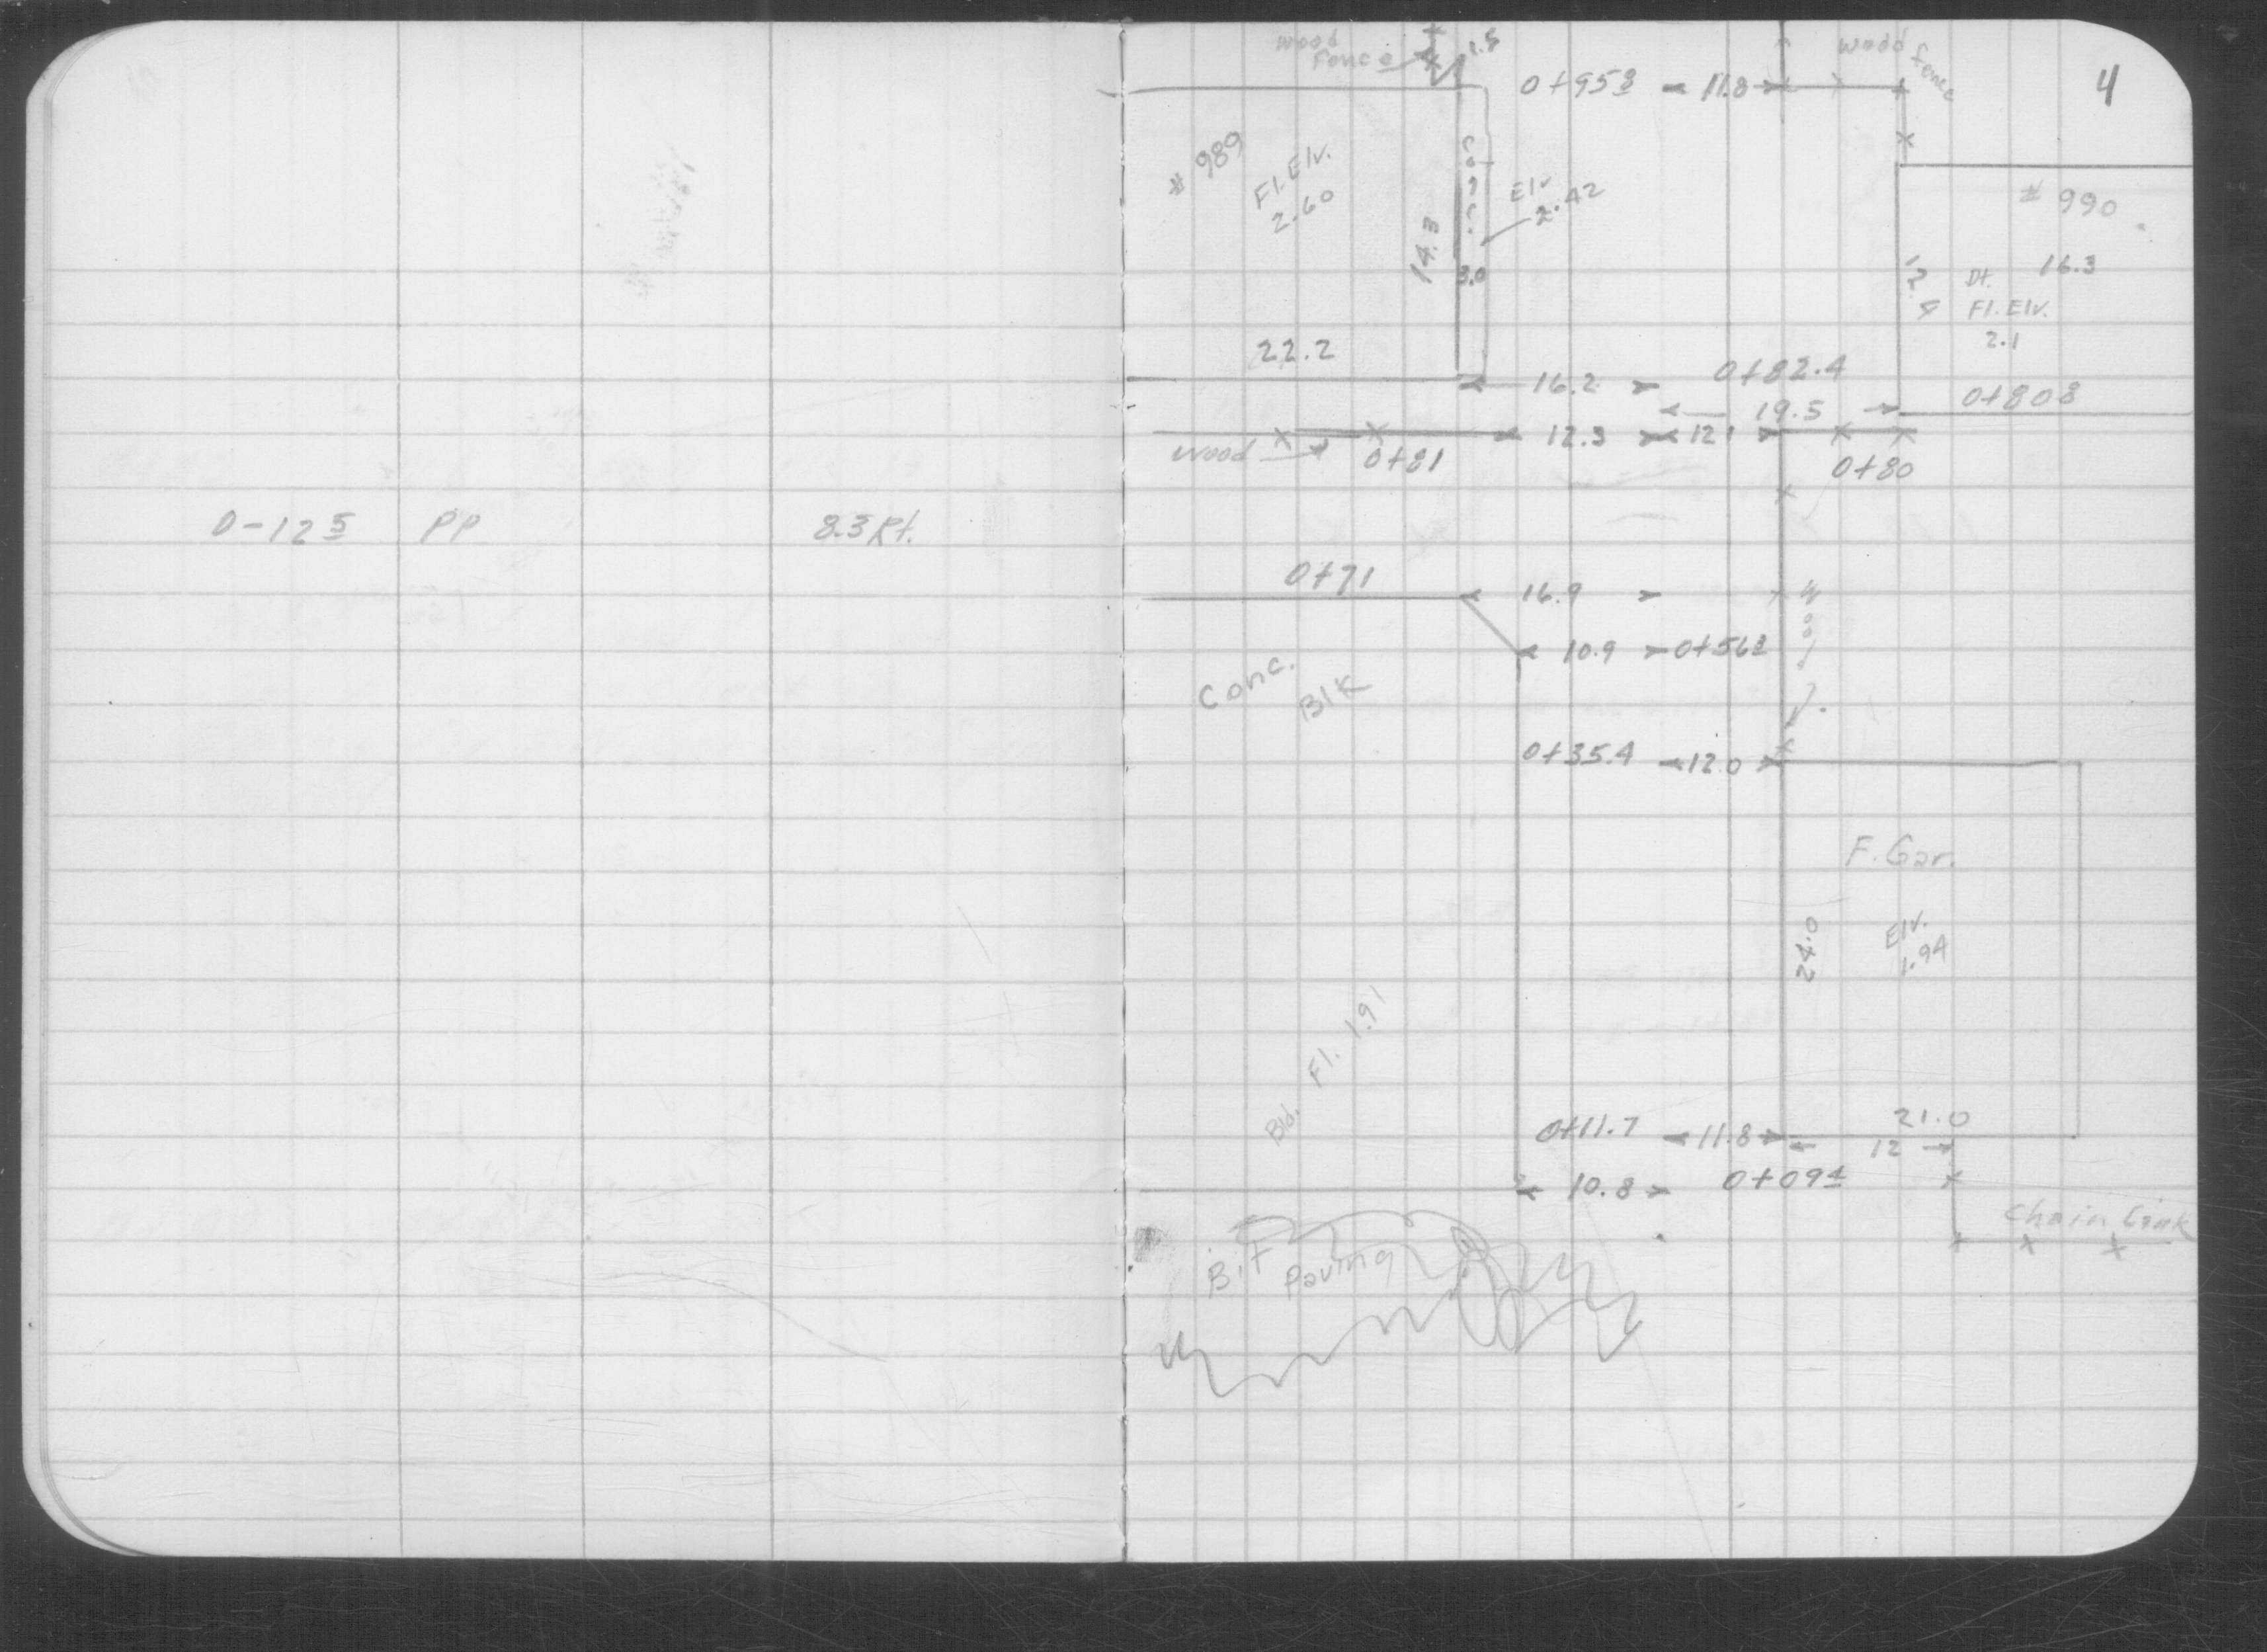 0-12 5 PP 8.3 Rt.
4
wood fence
1.8
0+95 8 11.8
wood fence
# 989
Fl. Elv.
2.60
conc.
Elv
2.42
14.3
3.0
# 990
16.3
Fl. Elv.
2.1
22.2
16.2
0+82.4
19.5
0+80 8
wood
0+81
12.3
12.1
0+80
0+71
16.9
wood
10.9
Conc.
Blk
0+35.4
12.0
F. Gar.
Elv.
1.94
24.0
Bld. Fl. 1.91
0+11.7
11.8
21.0
12
10.8
0+09 4
Chain Link
Bit Paving